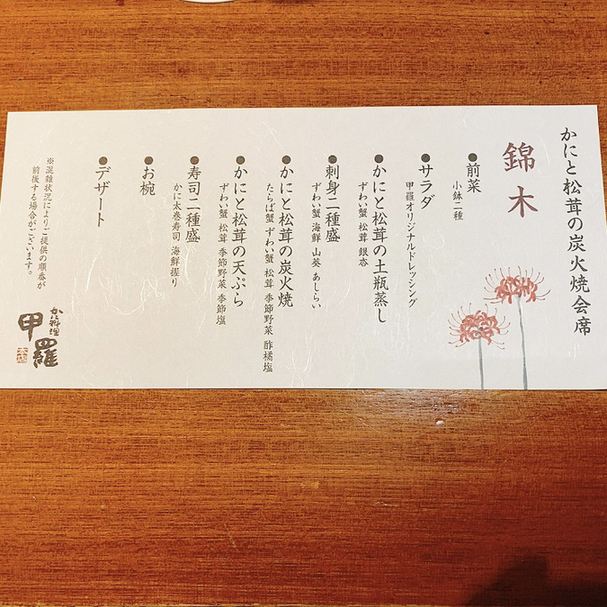 かにと松茸の炭火焼会席
錦木
●前菜
小鉢二種
●サラダ
甲羅オリジナルドレッシング
●かにと松茸の土瓶蒸し
ずわい蟹 松茸 銀杏
●刺身二種盛
ずわい蟹 海鮮 山葵 あしらい
●かにと松茸の炭火焼
たらば蟹 ずわい蟹 松茸 季節野菜 酢橘塩
●かにと松茸の天ぷら
ずわい蟹 松茸 季節野菜 季節塩
●寿司二種盛
かに太巻寿司 海鮮握り
●お椀
●デザート
※混雑状況によりご提供の順番が
前後する場合がございます。
かに料理
甲羅